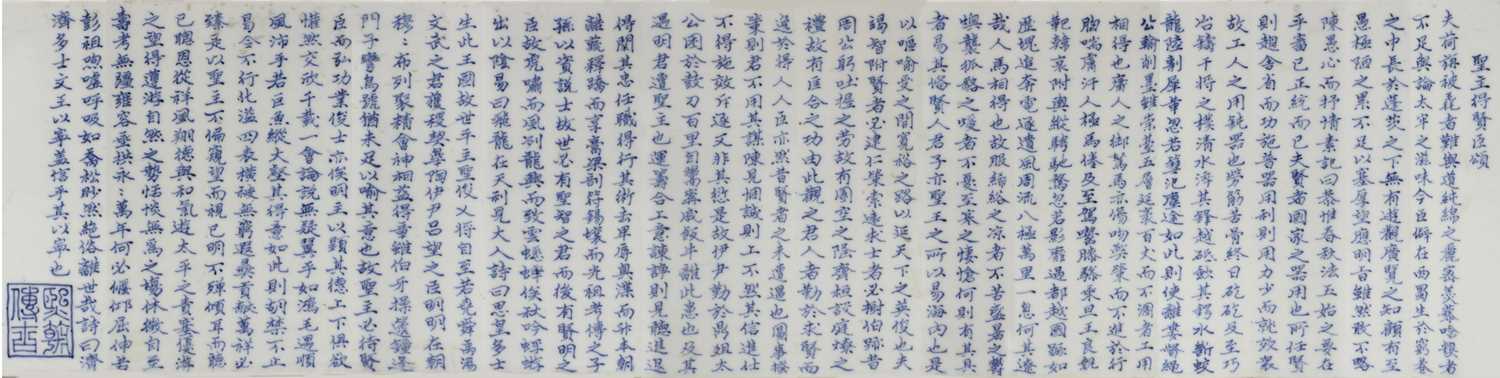 聖主得賢臣頌
夫荷旃被毳者難與道純綿之麗密羹藜唅糗者
不足與論太牢之滋味今臣僻在西蜀生於窮巷
之中長於蓬茨之下無有遊觀廣覽之知顧有至
愚極陋之累不足以塞厚望應明旨雖然敢不略
陳愚心而抒情素記曰恭惟春秋法五始之要在
乎審已正統而已夫賢者國家之器用也所任賢
則趨舍省而功施普器用利則用力少而就效衆
故工人之用鈍器也勞筋苦骨終日矻矻及至巧
冶鑄干將之樸清水淬其鋒越砥斂其鍔水斷蛟
龍陸剸犀革忽若篲氾塵塗如此則使離婁督繩
公輸削墨雖崇臺五層延袤百丈而不溷者工用
相得也庸人之御駑馬亦傷吻弊策而不進於行
胸喘膚汗人極馬倦及至駕齧膝驂乘旦王良執
靶韓哀附輿縱騁馳騖忽若影靡過都越國蹶如
歷塊追奔電逐遺風周流八極萬里一息何其遼
哉人馬相得也故服絺綌之涼者不苦盛暑之鬱
燠襲狐貉之暖者不憂至寒之悽愴何則有其具
者易其備賢人君子亦聖王之所以易海內也是
以嘔喻受之開寬裕之路以延天下之英俊也夫
竭智附賢者必建仁策索遠求士者必樹伯跡昔
周公躬吐握之勞故有圄空之隆齊桓設庭燎之
禮故有匡合之功由此觀之君人者勤於求賢而
逸於得人人臣亦然昔賢者之未遭遇也圖事揆
策則君不用其謀陳見悃誠則上不然其信進仕
不得施效斥逐又非其愆是故伊尹勤於鼎俎太
公困於鼓刀百里自鬻甯戚飯牛離此患也及其
遇明君遭聖主也運籌合上意諫諍則見聽進退
得關其忠任職得行其術去卑辱奧渫而升本朝
離蔬釋蹻而享膏粱剖符錫壤而光祖考傳之子
孫以資說士故世必有聖智之君而後有賢明之
臣故虎嘯而風冽龍興而致雲蟋蟀俟秋吟蜉蝣
出以陰易曰飛龍在天利見大人詩曰思皇多士
生此王國故世平主聖俊乂將自至若堯舜禹湯
文武之君獲稷契皋陶伊尹呂望之臣明明在朝
穆穆布列聚精會神相益得章雖伯牙操遞鍾逢
門子彎烏號猶未足以喻其意也故聖主必待賢
臣而弘功業俊士亦俟明主以顯其德上下俱欲
懽然交欣千載一會論說無疑翼乎如鴻毛遇順
風沛乎若巨魚縱大壑其得意如此則胡禁不止
曷令不行化溢四表橫被無窮遐夷貢獻萬祥必
臻是以聖主不徧窺望而視已明不殫傾耳而聽
已聰恩從祥風翱德與和氣遊太平之責塞優游
之望得遵游自然之勢恬淡無為之場休徵自至
壽考無疆雍容垂拱永永萬年何必偃仰屈伸若
彭祖呴噓呼吸如喬松眇然絕俗離世哉詩曰濟
濟多士文王以寧蓋信乎其以寧也
熙朝
傳古